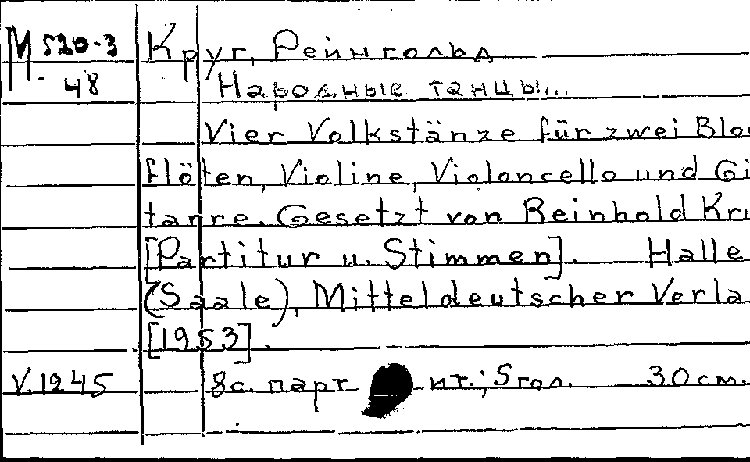 М 520-3 Круг, Рейнгольд
48 Народные танцы...
Vier Volkstänze für zwei Blo
flöten, Violine, Violoncello und Gi
tarre. Gesetzt von Reinhold Kru
[Partitur u. Stimmen]. Halle
(Saale), Mitteldeutscher Verla
[1953].
V.1245 8с. парт нт.; 5гол. 30см.